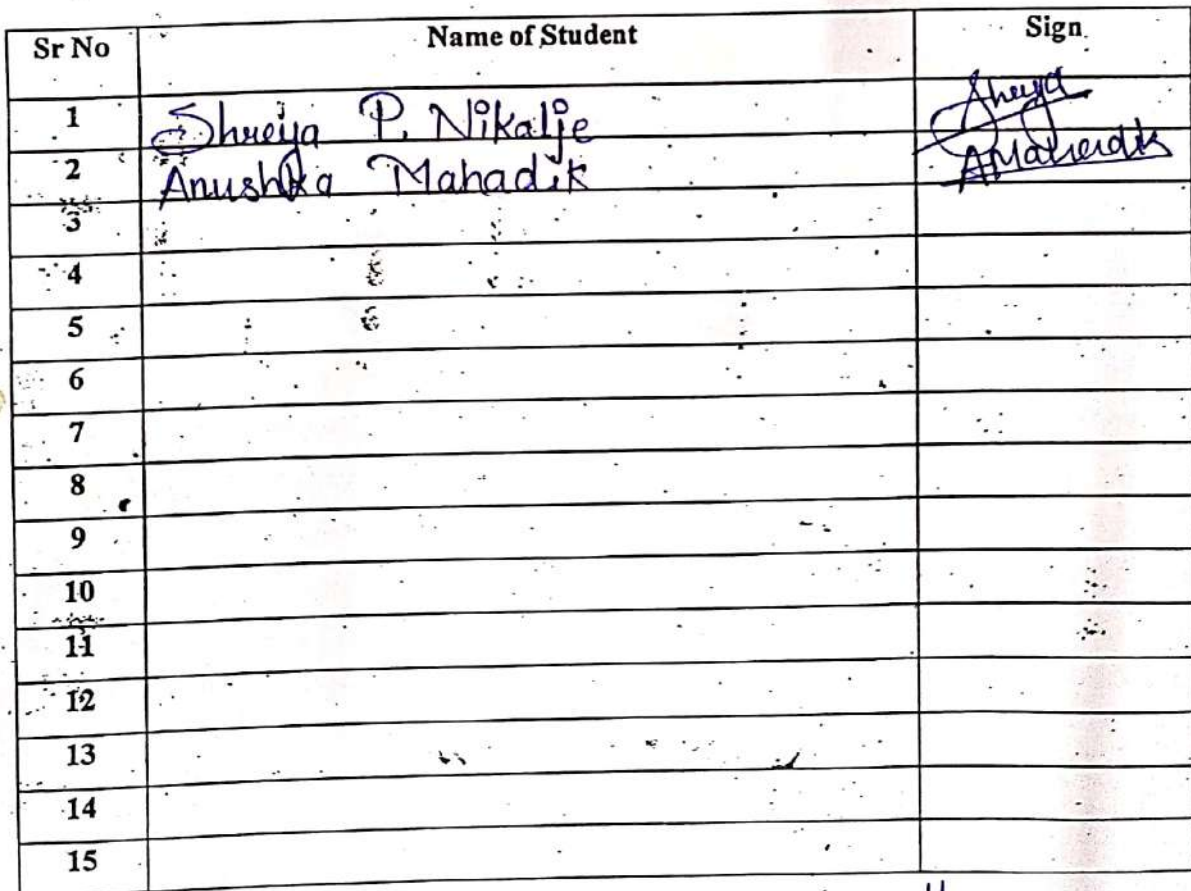 Sr No Name of Student Sign
1 Shreya P. Nikalje Shreya
2 Anushka Mahadik AMahadik
3
4
5
6
7
8
9
10
11
12
13
14
15